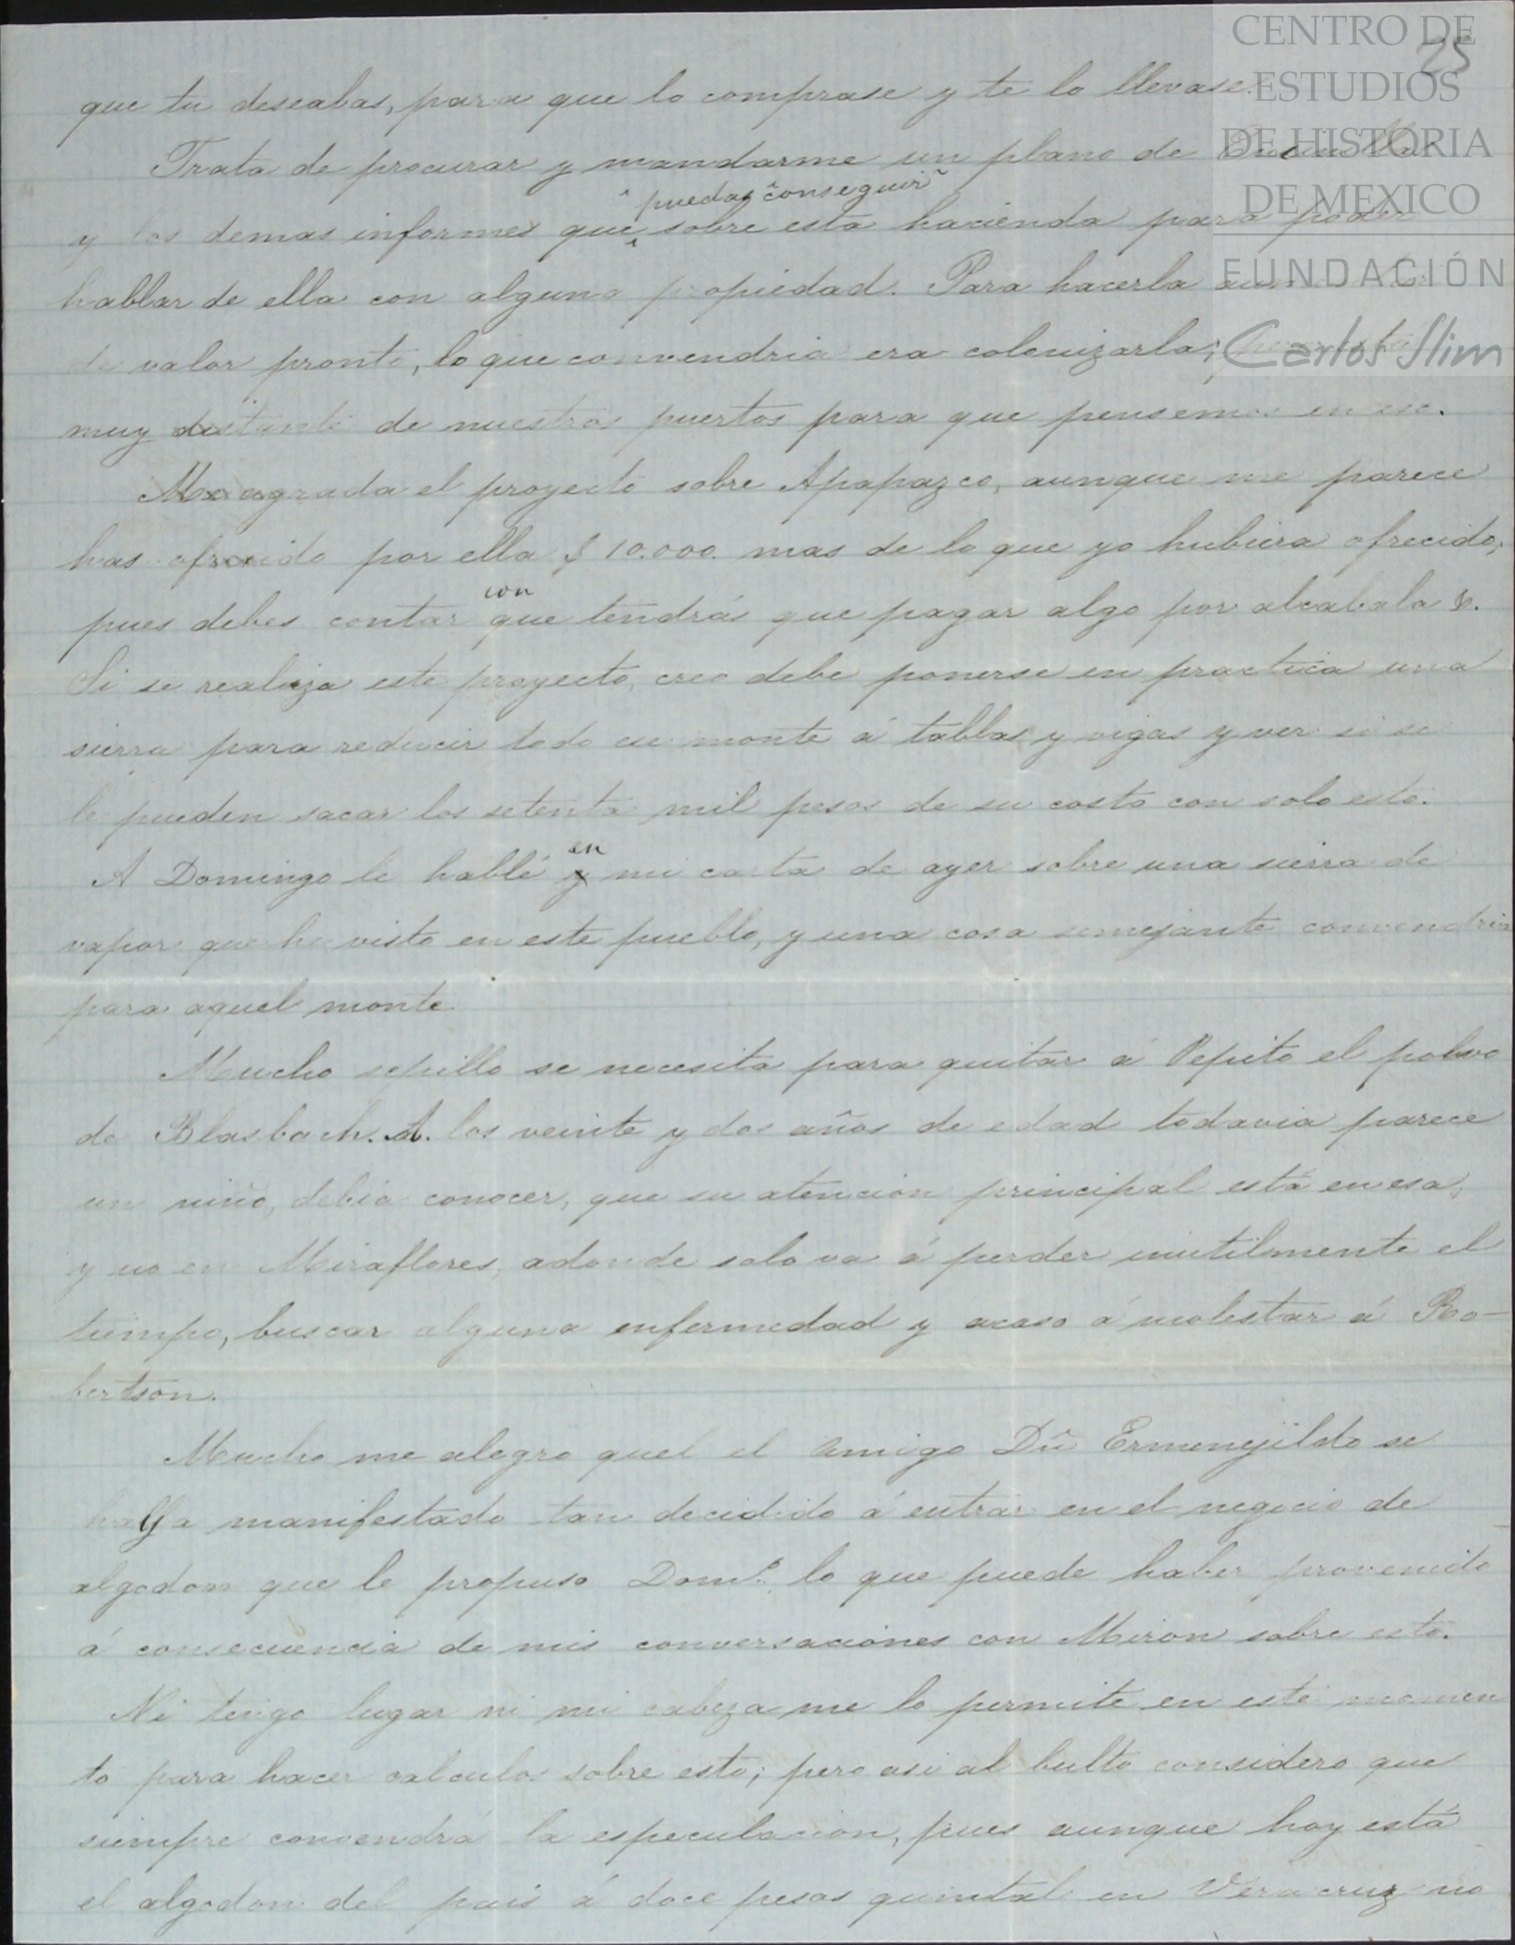 CENTRO DE
ESTUDIOS
DE HISTORIA
DE MEXICO
FUNDACIÓN
Carlos Slim
25
que tu deseabas, para que lo comprase y te lo llevase.
Trata de procurar y mandarme un plano de
puedas conseguir
y los demas informes que sobre esta hacienda para poder
hablar de ella con alguna propiedad. Para hacerla
de valor pronto, lo que convendria era colonizarla; pero está
muy distante de nuestros puertos para que pensemos en eso.
Me agrada el proyecto sobre Apapazco, aunque me parece
has ofrecido por ella $ 10.000. mas de lo que yo hubiera ofrecido,
con
pues debes contar que tendrás que pagar algo por alcabala &.
Si se realiza este proyecto, creo debe ponerse en practica una
sierra para reducir todo su monte á tablas y vigas y ver si se
le pueden sacar los setenta mil pesos de su costo con solo esto.
en
A Domingo le hablé y mi carta de ayer sobre una sierra de
vapor que he visto en este pueblo, y una cosa semejante convendria
para aquel monte
Mucho sepillo se necesita para quitar á Pepito el polvo
de Blasbach. A. los veinte y dos años de edad todavia parece
un niño, debia conocer, que su atencion principal está en esa,
y no en Miraflores, adonde solo va á perder inutilmente el
tiempo, buscar alguna enfermedad y acaso á molestar á Ro-
bertson.
Mucho me alegro quel el amigo Dn Ermenejildo se
haya manifestado tan decidido á entrar en el negocio de
algodon que le propuso Dom.o lo que puede haber provenido
á consecuencia de mis conversaciones con Miron sobre esto.
Ni tengo lugar ni mi cabeza me lo permite en este momen
to para hacer calculos sobre esto; pero asi al bulto considero que
siempre convendrá la especulacion, pues aunque hoy está
el algodon del pais á doce pesos quintal en Veracruz no